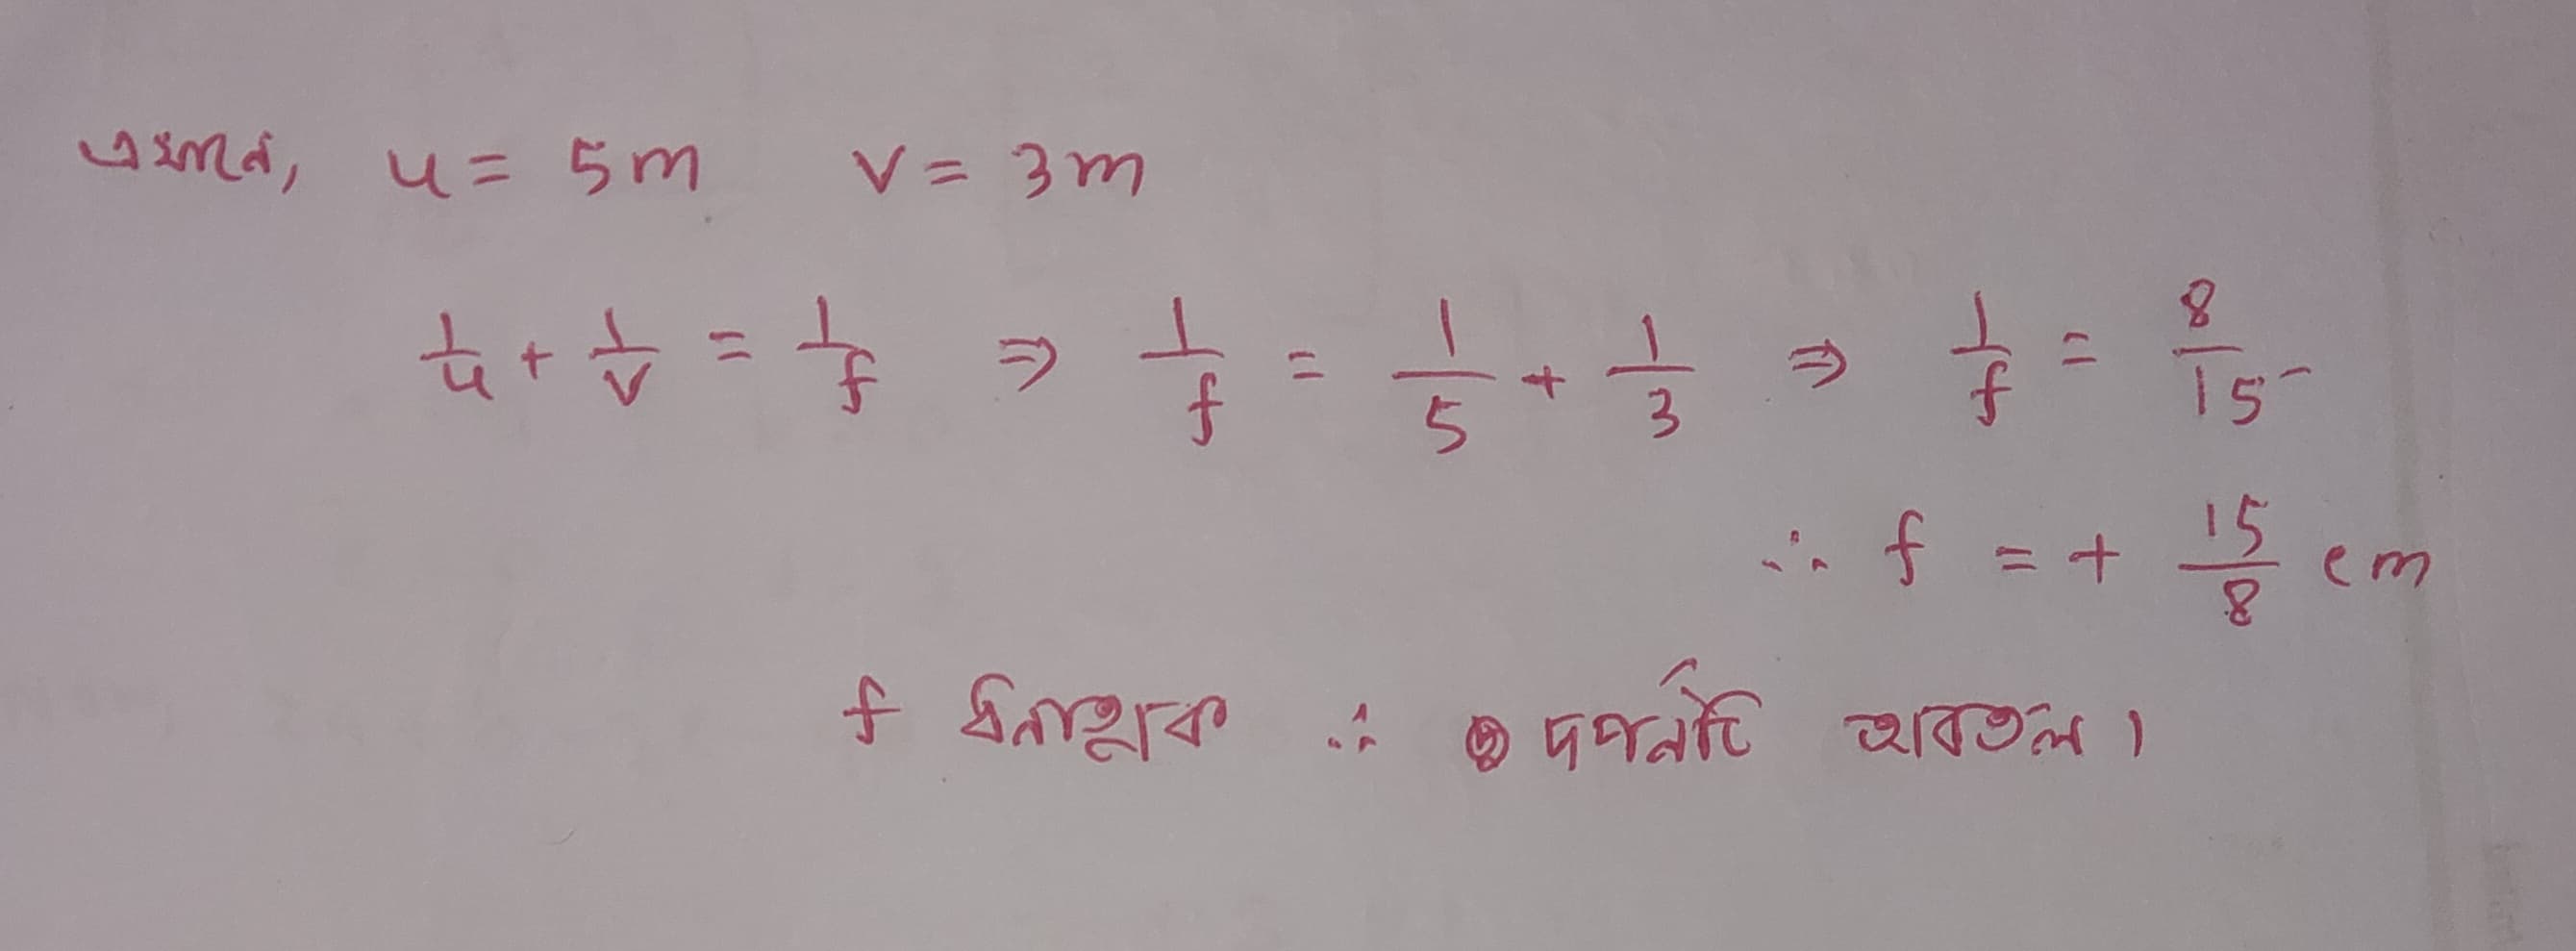 এখানে, u = 5m v = 3m
1/u + 1/v = 1/f ⇒ 1/f = 1/5 + 1/3 ⇒ 1/f = 8/15
∴ f = + 15/8 cm
f ধনাত্মক ∴ দর্পনটি অবতল।